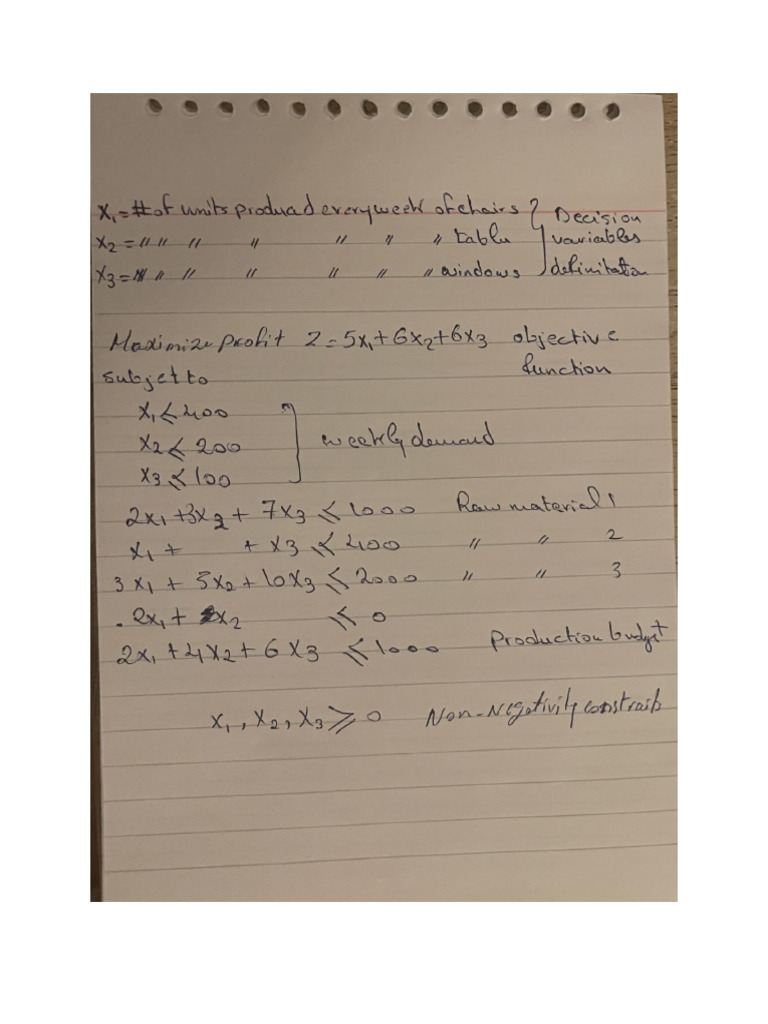 x₁ = # of units produced every week of chairs } Decision
x₂ = " " " " " " " table } variables
x₃ = " " " " " " " windows } definitation
Maximize profit Z = 5x₁ + 6x₂ + 6x₃ objective
subjet to function
x₁ ≤ 400
x₂ ≤ 200 } weekly demand
x₃ ≤ 100
2x₁ + 3x₂ + 7x₃ ≤ 1000 Raw material 1
x₁ + + x₃ ≤ 400 " " 2
3x₁ + 5x₂ + 10x₃ ≤ 2000 " " 3
. 2x₁ + x₂ ≤ 0
2x₁ + 4x₂ + 6x₃ ≤ 1000 Production budget
x₁, x₂, x₃ ≥ 0 Non-Negativity constraits